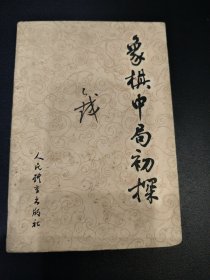 象棋中局初探
人民体育出版社